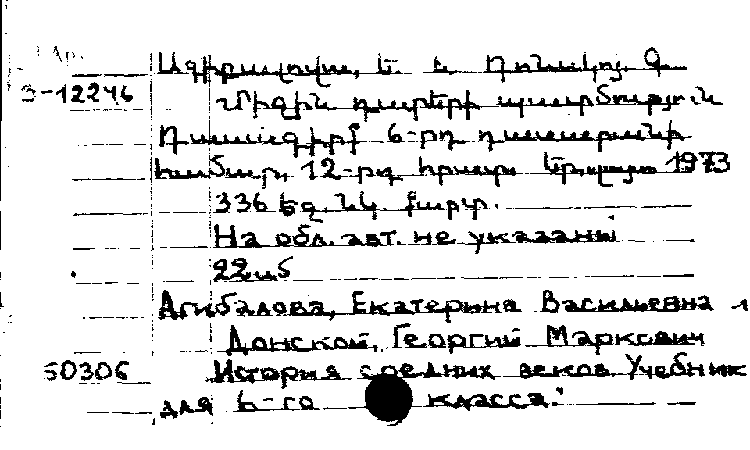 Ար.
Ագիբալովա, Ե. և Դոնսկոյ Գ.
Э-12246 Միջին դարերի պատմություն
Դասագիրք 6-րդ դասարանի
համար, 12-րդ հրատ. Երևան 1973
336 եց. նկ. քարտ.
На обл. авт. не указаны
22սմ
Агибалова, Екатерина Васильевна и
Донской, Георгий Маркович
50306 История средних веков Учебник
для 6-го класса.